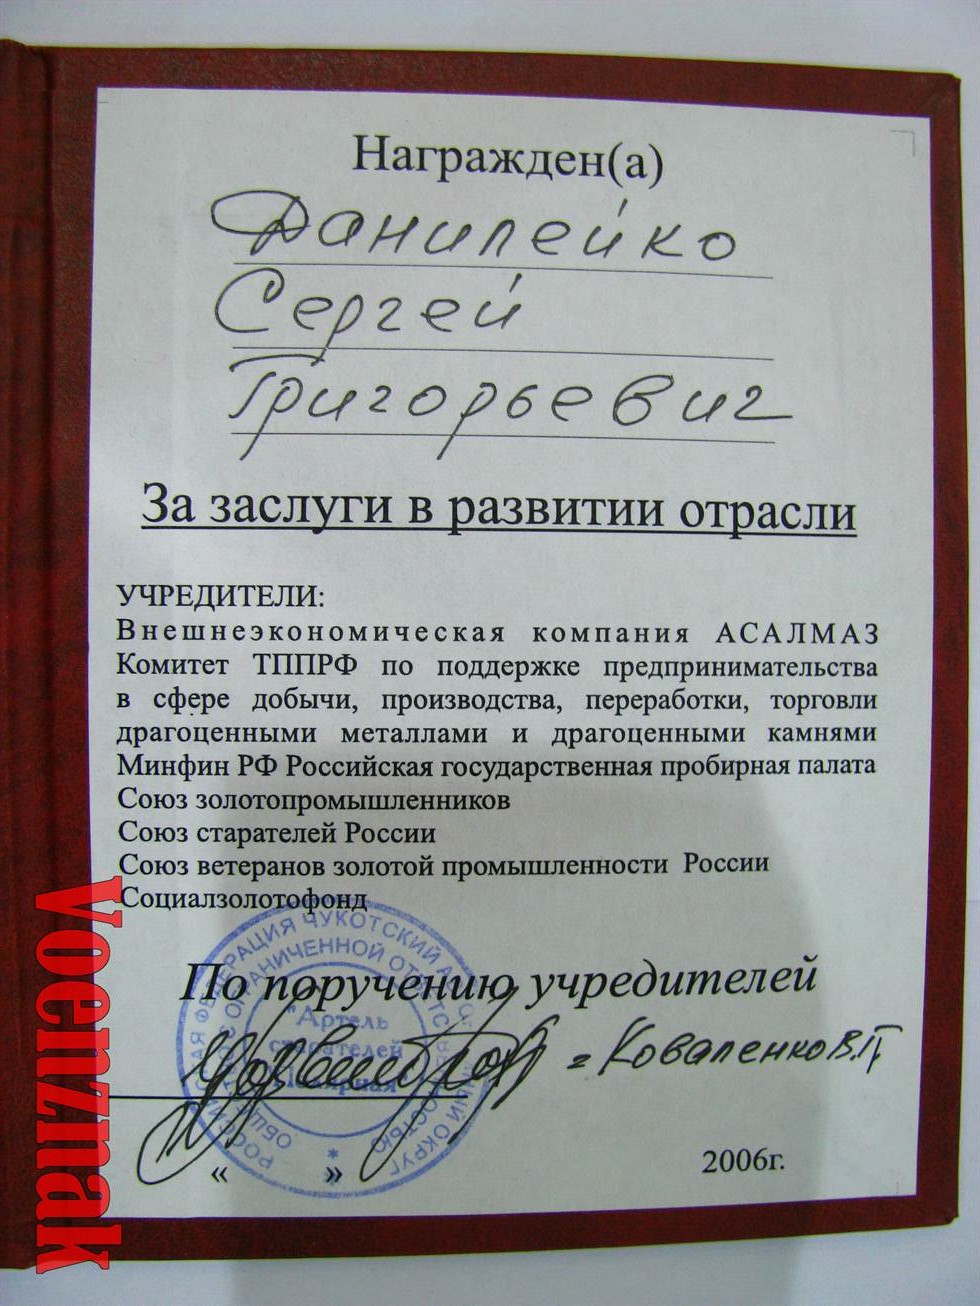 Награжден(а)
Данилейко
Сергей
Григорьевич
За заслуги в развитии отрасли
УЧРЕДИТЕЛИ:
Внешнеэкономическая компания АСАЛМАЗ
Комитет ТППРФ по поддержке предпринимательства
в сфере добычи, производства, переработки, торговли
драгоценными металлами и драгоценными камнями
Минфин РФ Российская государственная пробирная палата
Союз золотопромышленников
Союз старателей России
Союз ветеранов золотой промышленности России
Социалзолотофонд
По поручению учредителей
= Коваленко В.П
« » 2006г.
РОССИЙСКАЯ ФЕДЕРАЦИЯ ЧУКОТСКИЙ АВТОНОМНЫЙ ОКРУГ
ОБЩЕСТВО С ОГРАНИЧЕННОЙ ОТВЕТСТВЕННОСТЬЮ
"Артель
старателей
Полярная"
Voenznak